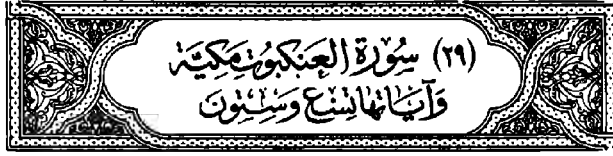 (٢٩) سُورَةُ الْعَنْكَبُوتِ مَكِيَّة
وَآيَاتُهَا تِسْعٌ وَسِتُّونَ